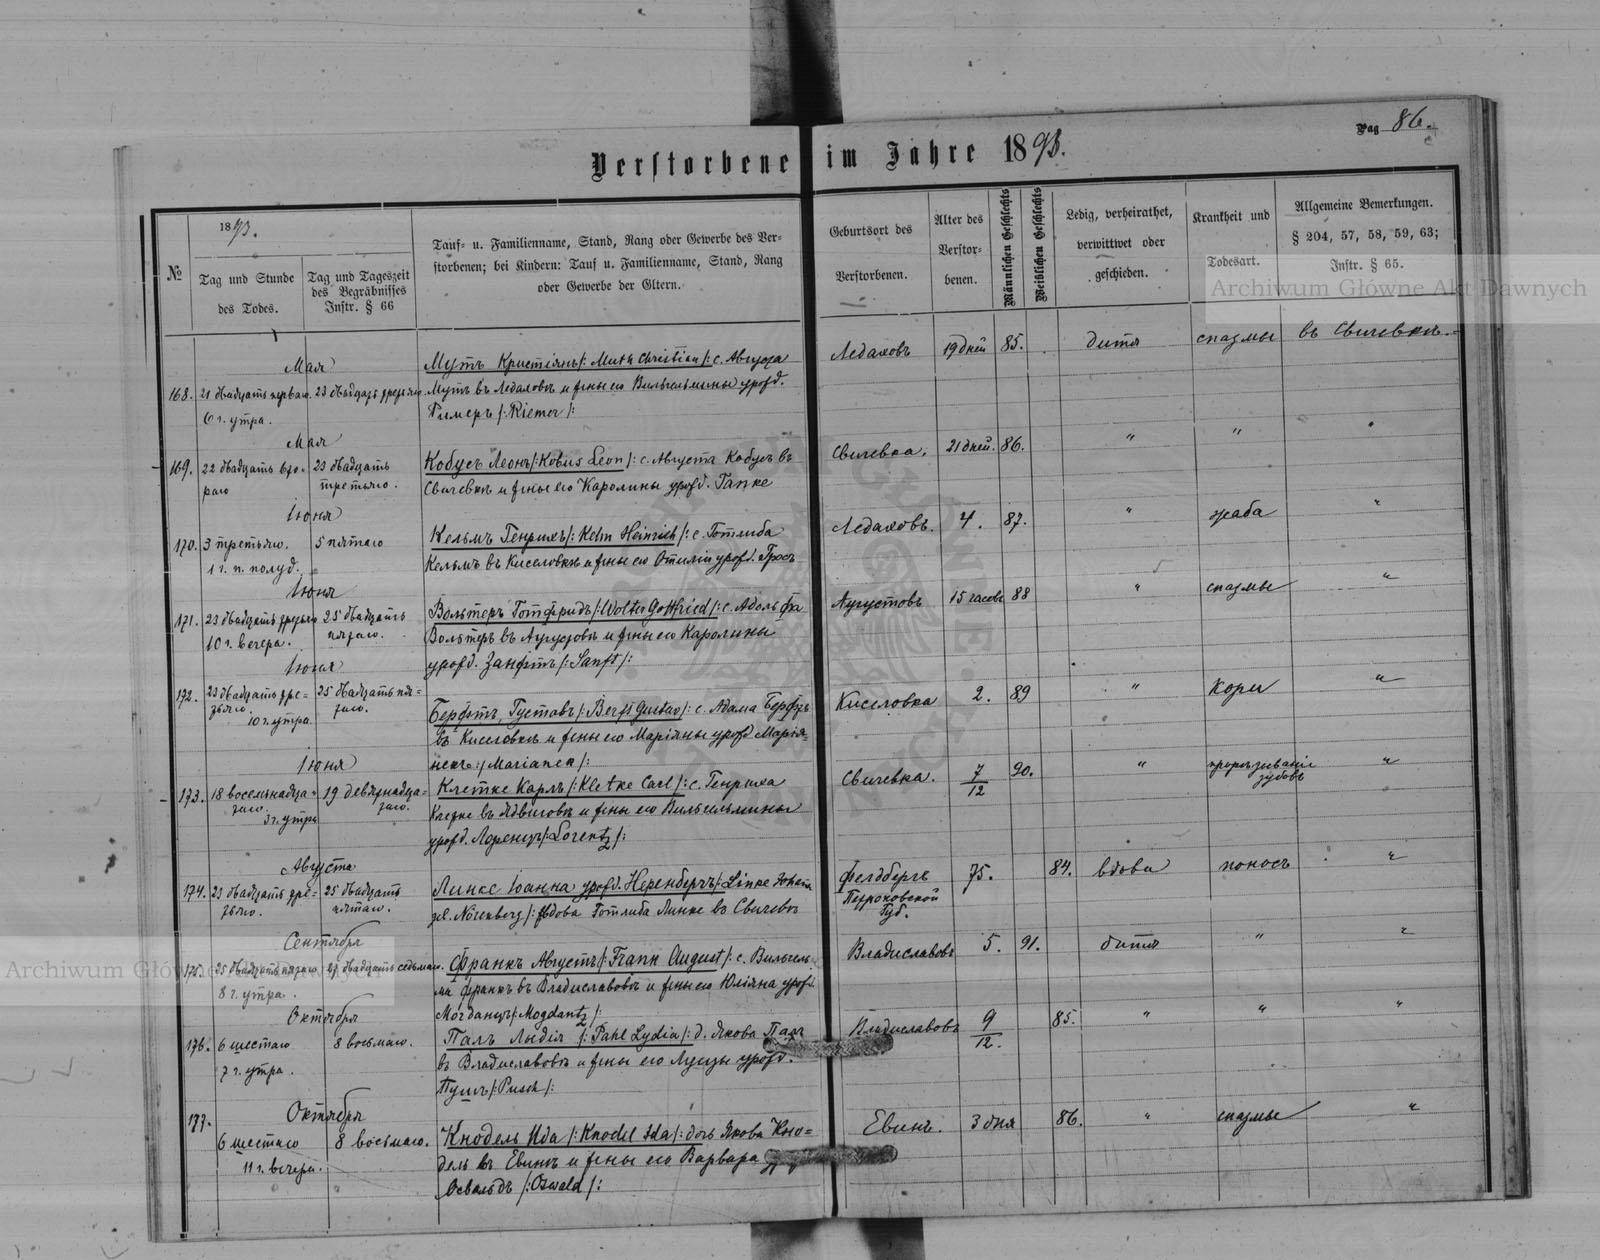 Pag 86.
Verstorbene im Jahre 1893.
№
1893.
Tag und Stunde
des Todes.
Tag und Tageszeit
des Begräbnisses
Instr. § 66
Tauf- u. Familienname, Stand, Rang oder Gewerbe des Ver-
storbenen; bei Kindern: Tauf u. Familienname, Stand, Rang
oder Gewerbe der Eltern.
Geburtsort des
Verstorbenen.
Alter des
Verstor-
benen.
Männlichen Geschlechts
Weiblichen Geschlechts
Ledig, verheirathet,
verwittwet oder
geschieden.
Krankheit und
Todesart.
Allgemeine Bemerkungen.
§ 204, 57, 58, 59, 63;
Instr. § 65.
Archiwum Główne Akt Dawnych
Мая
168. 21 двадцать перваго 23 двадцать третьяго
6 г. утра.
Мутъ Кристіянъ /: Muth Christian /: с. Августа
Мутъ въ Ледаховѣ и жены его Вильгельмины урожд.
Римеръ /: Riemer /:
Ледаховъ 19 дней 85. дитя спазмы въ Свичевкѣ
Мая
169. 22 двадцать вто-
раго
23 двадцать
третьяго.
Кобусъ Леонъ /: Kobus Leon /: с. Августа Кобусъ въ
Свичевкѣ и жены его Каролины урожд. Гапке
Свичевка. 21 дней. 86. " " "
Июня
170. 3 третьяго.
1 г. п. полуд.
5 пятаго
Кельмъ Генрихъ /: Kelm Heinrich /: с. Готлиба
Кельмъ въ Киселовкѣ и жены его Отиліи урожд. Гросъ
Ледаховъ. 4. 87. " жаба "
Июня
171. 23 двадцать третьяго
10 г. вечера.
25 двадцать
пятаго.
Вольтеръ Готфридъ /: Wolter Gottfried /: с. Адольфа
Вольтеръ въ Аугустовѣ и жены его Каролины
урожд. Занфтъ /: Sanft /:
Аугустовъ 15 часовъ 88 " спазмы "
Июня
172. 23 двадцать тре-
тьяго.
10 г. утра.
25 двадцать пя-
таго.
Берфтъ, Густавъ /: Berft Gustav /: с. Адама Берфтъ
въ Киселовкѣ и жены его Маріяны урожд. Марія-
некъ /: Marianek /:
Киселовка 2. 89 " кори "
Июня
173. 18 восемнадца-
таго.
3 г. утра
19 девятнадца-
таго.
Клетке Карлъ /: Kletke Carl /: с. Генриха
Клетке въ Ядвиговкѣ и жены его Вильгельмины
урожд. Лоренцъ /: Lorentz /:
Свичевка. 7/12 90. " прорѣзываніе
зубовъ "
Августа
174. 23 двадцать тре-
тьяго.
25 двадцать
пятаго.
Линке Іоанна урожд. Неренбергъ /: Linke Johanna
geb. Nörenberg /: вдова Готлиба Линке въ Свичевкѣ
Фелдбергъ
Петроковской
Губ.
75. 84. вдова поносъ "
Сентября
175. 25 двадцать пятаго 27 двадцать седьмаго.
8 г. утра.
Франкъ Августъ /: Frank August /: с. Вильгель-
ма Франкъ въ Владиславовѣ и жены его Юліяна урожд.
Могданцъ /: Mogdantz /:
Владиславовъ 5. 91. дитя " "
Октября
176. 6 шестаго
7 г. утра.
8 восьмаго.
Палъ Лидія /: Pahl Lydia /: д. Якова Палъ
въ Владиславовѣ и жены его Луизы урожд.
Пушъ /: Pusch /:
Владиславовъ 9/12. 85. " " "
Октября
177.
6 шестаго
11 г. вечера.
8 восьмаго.
Кнодель Ида /: Knodel Ida /: дочь Якова Кно-
дель въ Евинѣ и жены его Варвара
Освальдъ /: Oswald /:
Евинъ. 3 дня 86. " спазмы "
Archiwum Główne Akt Dawnych